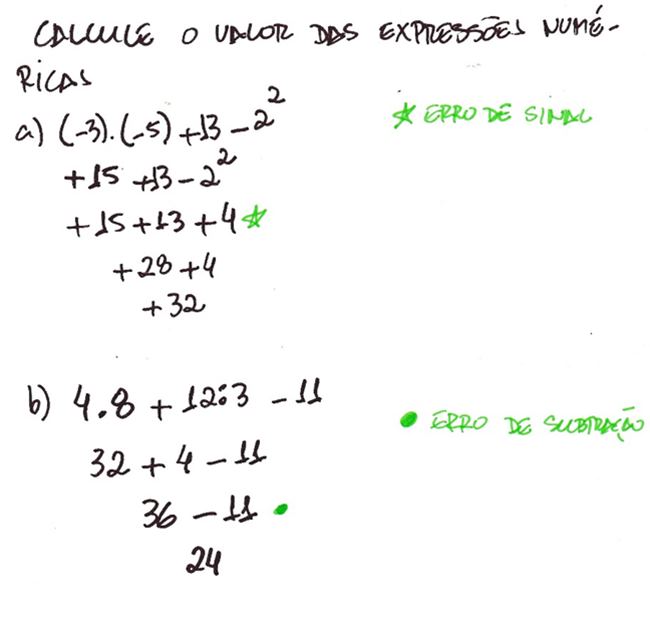 CALCULE O VALOR DAS EXPRESSÕES NUMÉ-
RICAS
a) (-3).(-5) +13 - 2²
★ ERRO DE SINAL
+15 +13 - 2²
+15 +13 +4 ★
+28 +4
+32
b) 4.8 + 12:3 - 11
● ERRO DE SUBTRAÇÃO
32 + 4 - 11
36 - 11 ●
24